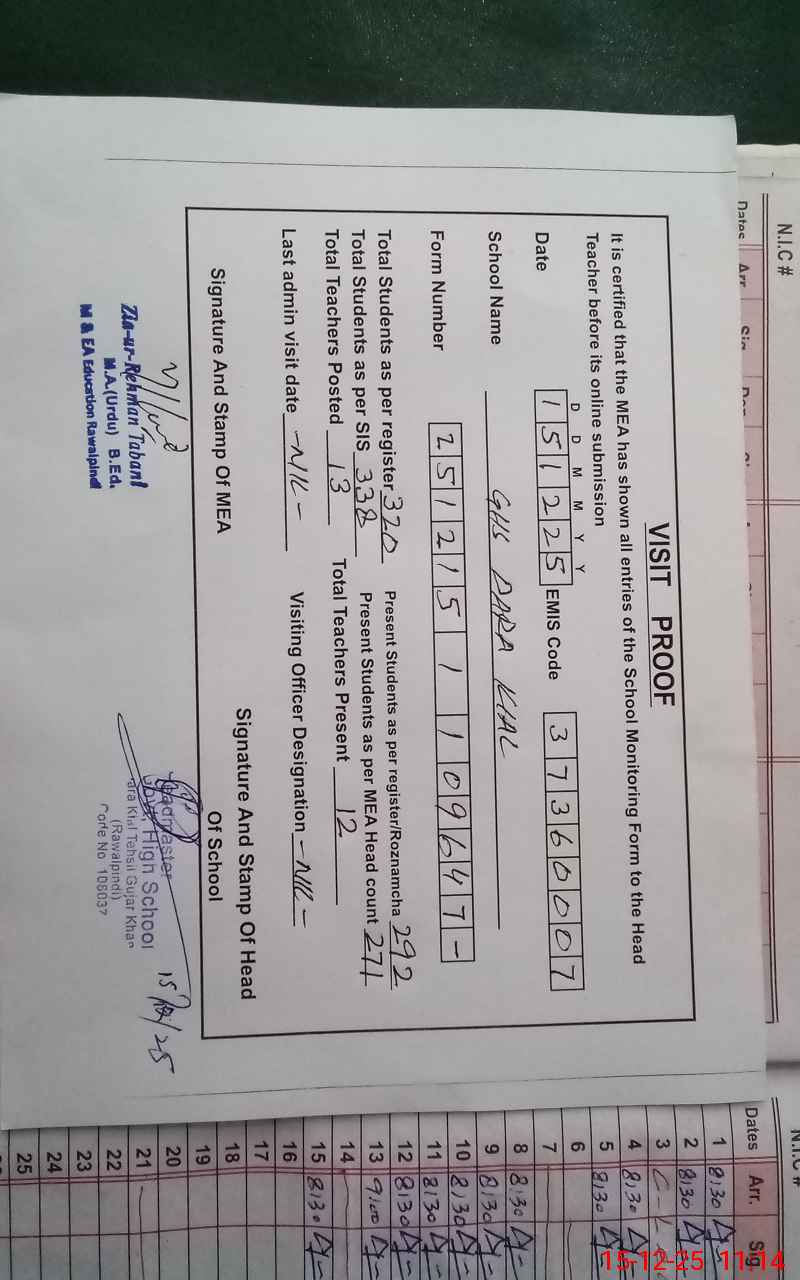 VISIT PROOF
It is certified that the MEA has shown all entries of the School Monitoring Form to the Head
Teacher before its online submission
D D M M Y Y
Date 151225 EMIS Code 37360007
School Name GHS DARA KIAL
Form Number 2512151109647-
Total Students as per register 320 Present Students as per register/Roznamcha 292
Total Students as per SIS 338 Present Students as per MEA Head count 271
Total Teachers Posted 13 Total Teachers Present 12
Last admin visit date -NIL- Visiting Officer Designation -NIL-
Signature And Stamp Of MEA
Signature And Stamp Of Head
Of School
Zia-ur-Rehman Tabani
M.A.(Urdu) B.Ed.
M & EA Education Rawalpindi
Headmaster
Govt. High School
Dara Kial Tehsil Gujar Khan
(Rawalpindi)
15/12/25
N.I.C #
Dates Arr. Sig
N.I.C #
Dates Arr. Sig
1 8:30
2 8:30
3
4 8:30
5 8:30
6
7
8 8:30
9 8:30
10 8:30
11 8:30
12 8:30
13 9:00
14
15 8:30
16
17
18
19
20
21
22
23
24
25
15-12-25 11:14